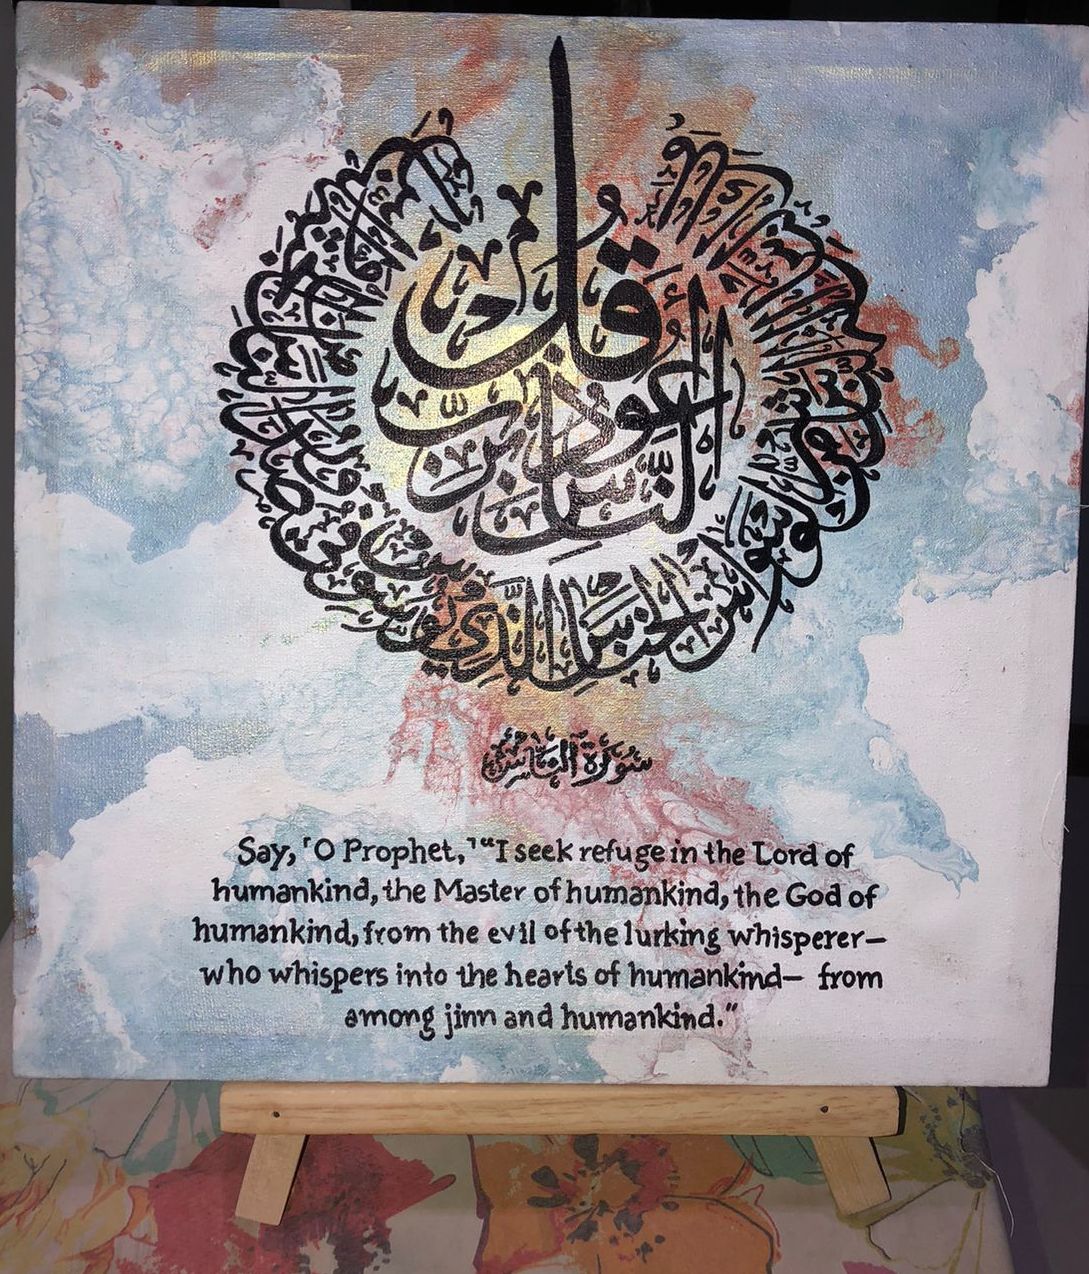 قل
أعوذ برب
الناس
ملك الناس إله الناس من شر الوسواس الخناس الذي يوسوس في صدور الناس من الجنة والناس
سورة الناس
Say, ˹O Prophet,˺ “I seek refuge in the Lord of
humankind, the Master of humankind, the God of
humankind, from the evil of the lurking whisperer—
who whispers into the hearts of humankind— from
among jinn and humankind.”